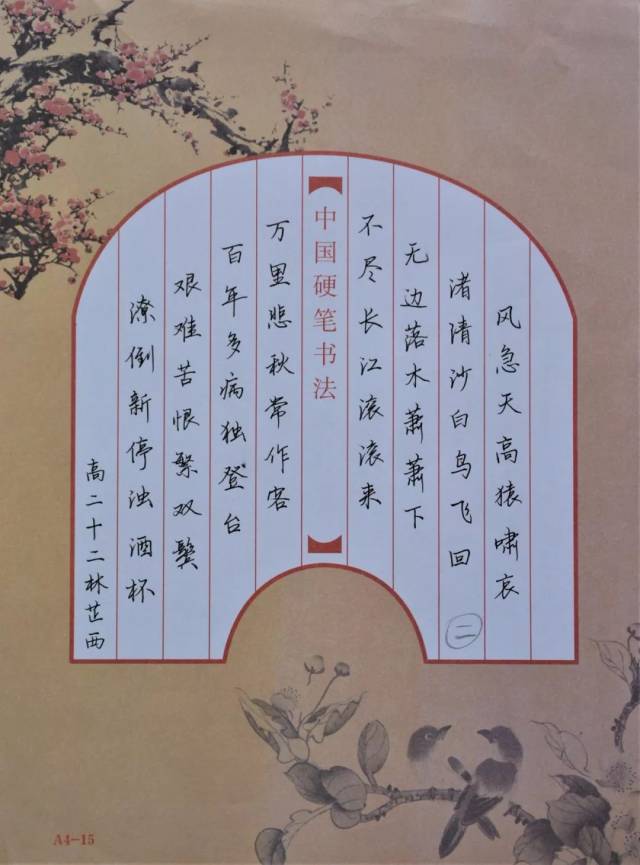 风急天高猿啸哀
渚清沙白鸟飞回
二
无边落木萧萧下
不尽长江滚滚来
【中国硬笔书法】
万里悲秋常作客
百年多病独登台
艰难苦恨繁双鬓
潦倒新停浊酒杯
高二十二林芷西
A4-15